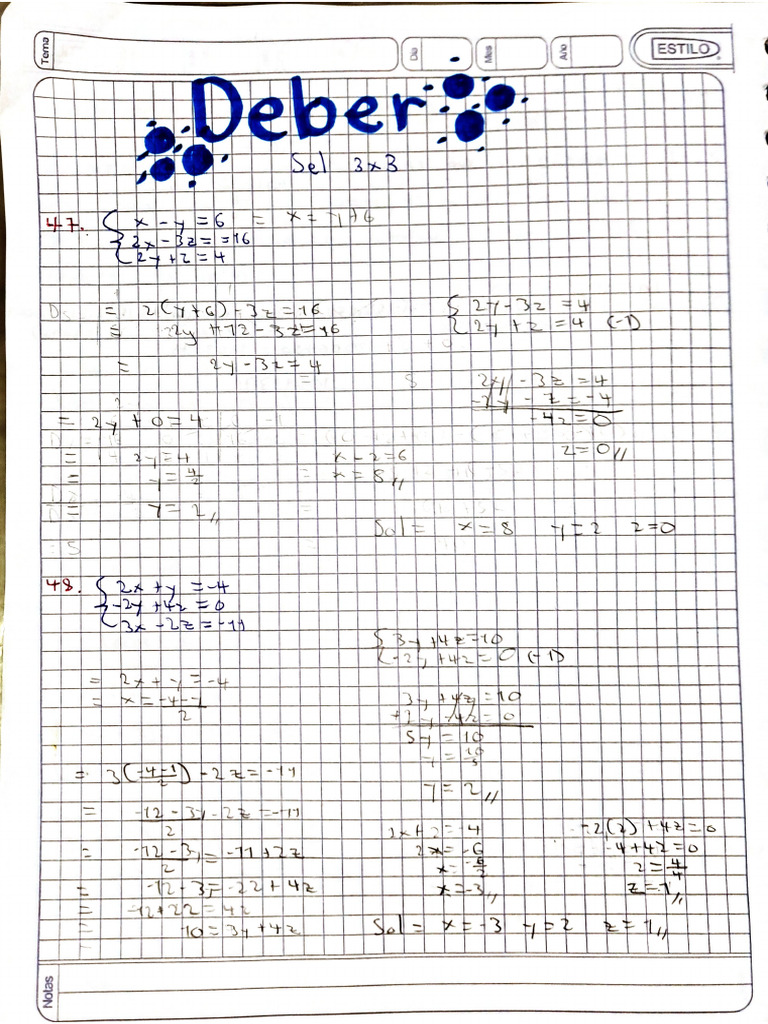 Tema
Dia
Mes
Año
ESTILO
Deber
Sel 3x3
47. { x - y = 6 = x = y+6
2x - 3z = = 16
2y + z = 4
= 2(y+6) - 3z = 16
= 2y + 12 - 3z = 16
= 2y - 3z = 4
{ 2y - 3z = 4
2y + z = 4 (-1)
2y - 3z = 4
-2y - z = -4
-4z = 0
z = 0 //
= 2y + 0 = 4
= 2y = 4
= y = 4/2
= y = 2 //
x - 2 = 6
= x = 8 //
Sol = x = 8 y = 2 z = 0
48. { 2x + y = -4
-2y + 4z = 0
3x - 2z = -11
= 2x + y = -4
= x = -4-y/2
= 3(-4-y/2) - 2z = -11
= -12 - 3y/2 - 2z = -11
= -12 - 3y/2 = -11 + 2z
= -12 - 3y = -22 + 4z
= -12 + 22 = 4z
= 10 = 3y + 4z
{ 3y + 4z = 10
-2y + 4z = 0 (-1)
3y + 4z = 10
+2y - 4z = 0
5y = 10
y = 10/5
y = 2 //
2x + 2 = -4
2x = -6
x = -6/2
x = -3 //
-2(2) + 4z = 0
-4 + 4z = 0
z = 4/4
z = 1 //
Sol = x = -3 y = 2 z = 1 //
Notas